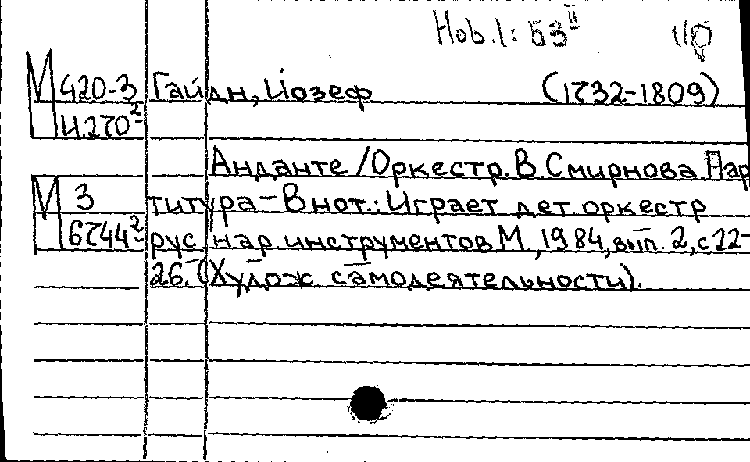 Hob.I: 53 II
M 420-3 Гайдн, Йозеф (1732-1809)
И 270²
Анданте /Оркестр. В. Смирнова. Пар
М 3 титура – В нот.: Играет дет оркестр
6744² рус. нар. инструментов М., 1984, вып. 2, с 22-
26. (Худож. самодеятельности).